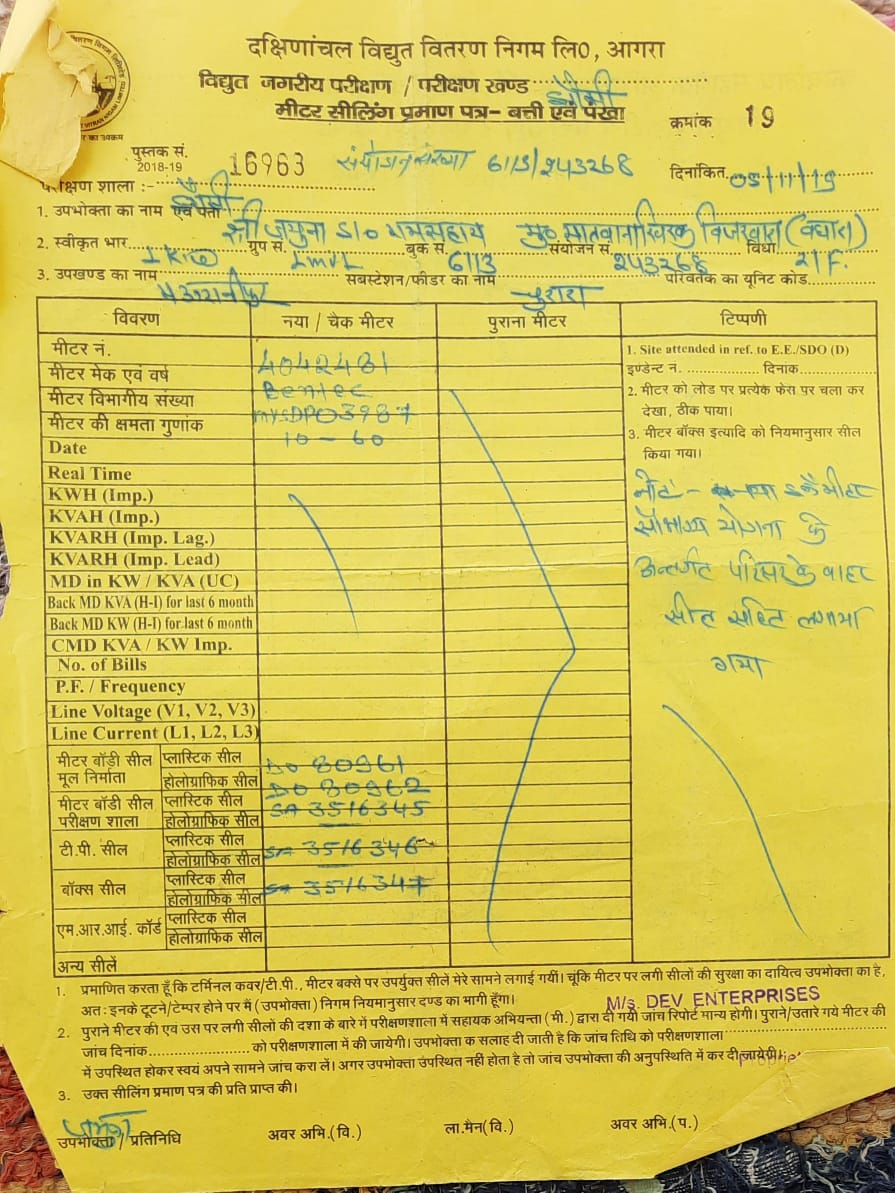 दक्षिणांचल विद्युत वितरण निगम लि0, आगरा
विद्युत जगरीय परीक्षण / परीक्षण खण्ड झाँसी
मीटर सीलिंग प्रमाण पत्र- बत्ती एवं पंखा
क्रमांक 19
पुस्तक सं.
2018-19
16963 संयोजन संख्या 6113/243268 दिनांकित. 05/11/19
परीक्षण शाला :- झाँसी
1. उपभोक्ता का नाम एवं पता श्री जमुना S/o रामसहाय मु०
2. स्वीकृत भार 1kw ग्रुप सं. LMV1 बुक सं. 6113 संयोजन सं. 243268 विधा 21F.
3. उपखण्ड का नाम मऊरानीपुर सबस्टेशन/फीडर का नाम परिवर्तक का यूनिट कोड
विवरण नया / चैक मीटर पुराना मीटर टिप्पणी
मीटर नं. 4042481
मीटर मेक एवं वर्ष Bentec
मीटर विभागीय संख्या
मीटर की क्षमता गुणांक 10-60
Date
Real Time
KWH (Imp.)
KVAH (Imp.)
KVARH (Imp. Lag.)
KVARH (Imp. Lead)
MD in KW / KVA (UC)
Back MD KVA (H-I) for last 6 month
Back MD KW (H-I) for last 6 month
CMD KVA / KW Imp.
No. of Bills
P.F. / Frequency
Line Voltage (V1, V2, V3)
Line Current (L1, L2, L3)
मीटर बॉडी सील मूल निर्माता
प्लास्टिक सील DO 80961
होलोग्राफिक सील DO 80962
मीटर बॉडी सील परीक्षण शाला
प्लास्टिक सील SA 3516345
होलोग्राफिक सील
टी.पी. सील
प्लास्टिक सील
होलोग्राफिक सील SA 3516346
बॉक्स सील
प्लास्टिक सील SA 3516347
होलोग्राफिक सील
एम.आर.आई. कॉर्ड
प्लास्टिक सील
होलोग्राफिक सील
अन्य सीलें
1. Site attended in ref. to E.E./SDO (D)
इण्डेन्ट नं. दिनांक
2. मीटर को लोड पर प्रत्येक फेस पर चला कर
देखा, ठीक पाया।
3. मीटर बॉक्स इत्यादि को नियमानुसार सील
किया गया।
नोट - मीटर
सौभाग्य योजना के
अन्तर्गत परिसर के बाहर
सील सहित लगाया
गया
1. प्रमाणित करता हूँ कि टर्मिनल कवर/टी.पी., मीटर बक्से पर उपर्युक्त सीलें मेरे सामने लगाई गयीं। चूंकि मीटर पर लगी सीलों की सुरक्षा का दायित्व उपभोक्ता का है,
अतः इनके टूटने/टेम्पर होने पर मैं (उपभोक्ता) निगम नियमानुसार दण्ड का भागी हूँगा।
M/s. DEV ENTERPRISES
2. पुराने मीटर की एवं उस पर लगी सीलों की दशा के बारे में परीक्षणशाला में सहायक अभियन्ता (मी.) द्वारा दी गयी जांच रिपोर्ट मान्य होगी। पुराने/उतारे गये मीटर की
जांच दिनांक को परीक्षणशाला में की जायेगी। उपभोक्ता क सलाह दी जाती है कि जांच तिथि को परीक्षणशाला
में उपस्थित होकर स्वयं अपने सामने जांच करा लें। अगर उपभोक्ता उपस्थित नहीं होता है तो जांच उपभोक्ता की अनुपस्थिति में कर दी जायेगी।
3. उक्त सीलिंग प्रमाण पत्र की प्रति प्राप्त की।
जमुना
उपभोक्ता / प्रतिनिधि अवर अभि.(वि.) ला.मैन(वि.) अवर अभि.(प.)